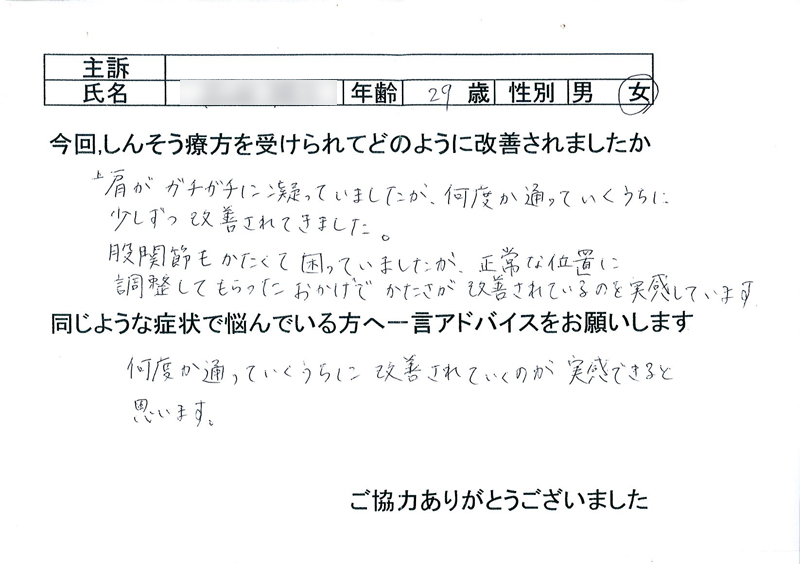 主訴
氏名 年齢 29 歳 性別 男 女
今回,しんそう療方を受けられてどのように改善されましたか
肩がガチガチに凝っていましたが、何度か通っていくうちに
少しずつ改善されてきました。
股関節もかたくて困っていましたが、正常な位置に
調整してもらったおかげでかたさが改善されているのを実感しています
同じような症状で悩んでいる方へ一言アドバイスをお願いします
何度か通っていくうちに改善されていくのが実感できると
思います。
ご協力ありがとうございました